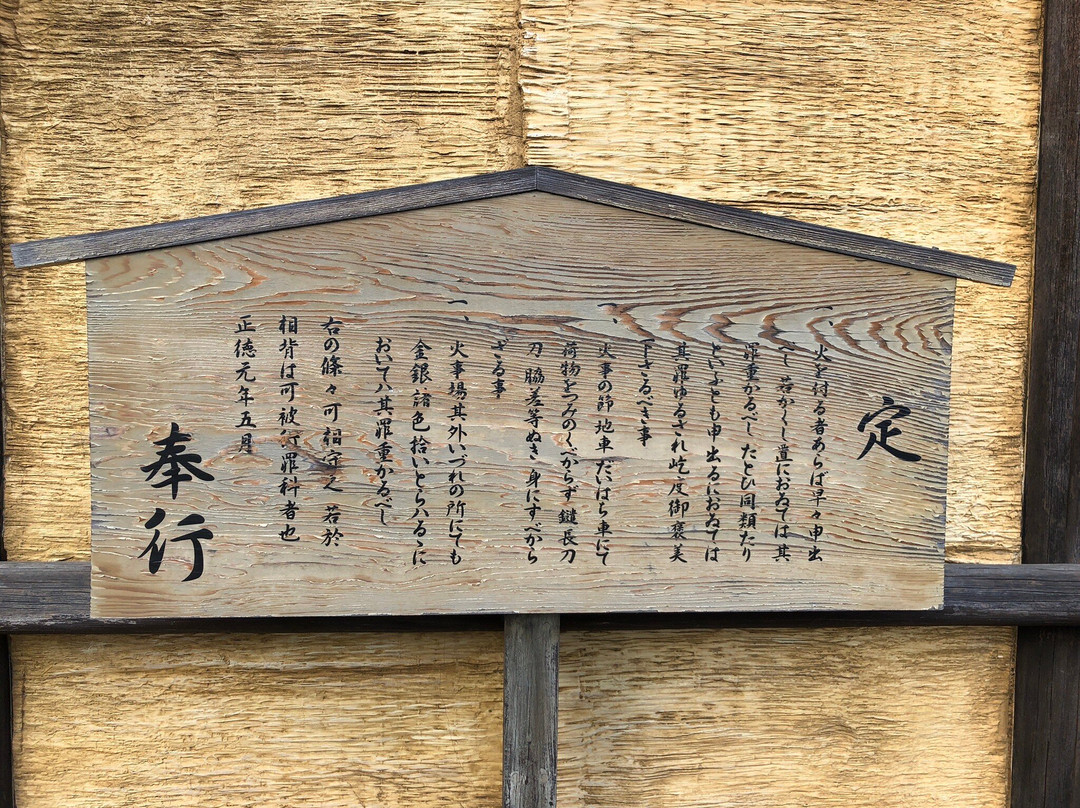 定
一、火を付る者あらば早々申出
べし 若かくし置におゐては其
罪重かるべし たとひ同類たり
といふとも申出るにおゐては
其罪ゆるされ屹度御褒美
下さるべき事
一、火事の節地車だいはち車にて
荷物をつみのくべからず 鑓長刀
刀脇差等ぬき身にすべから
ざる事
一、火事場其外いづれの所にても
金銀諸色拾いとらハるゝに
おいてハ其罪重かるべし
右の條々可相守之 若於
相背は可被行罪科者也
正徳元年五月
奉行